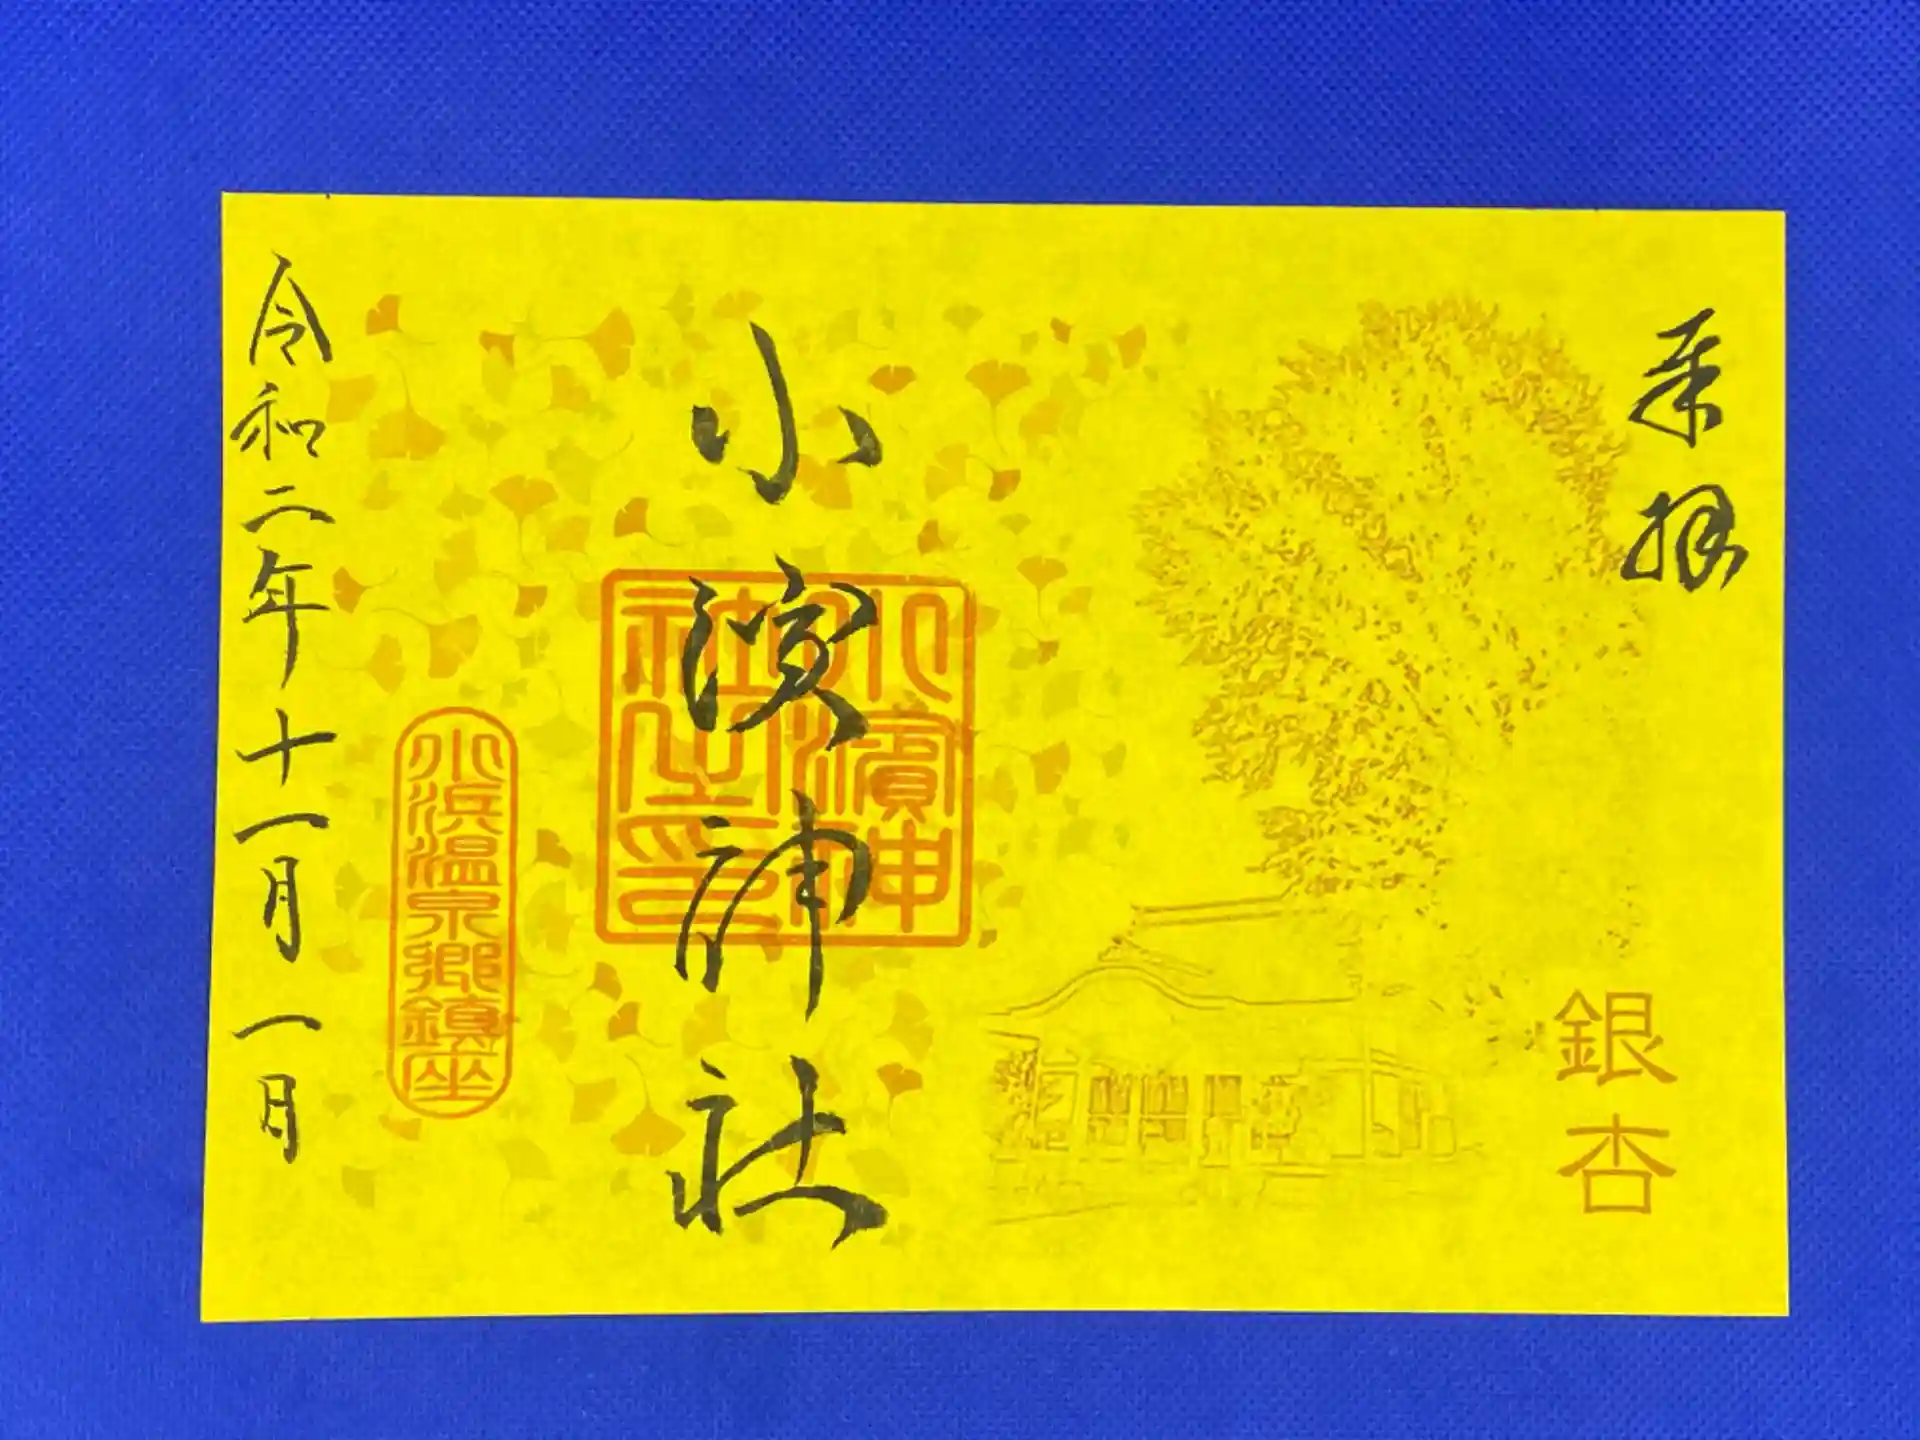 奉拝
銀杏
小濱神社
小濱神社之印
小浜温泉郷鎮座
令和二年十一月一日